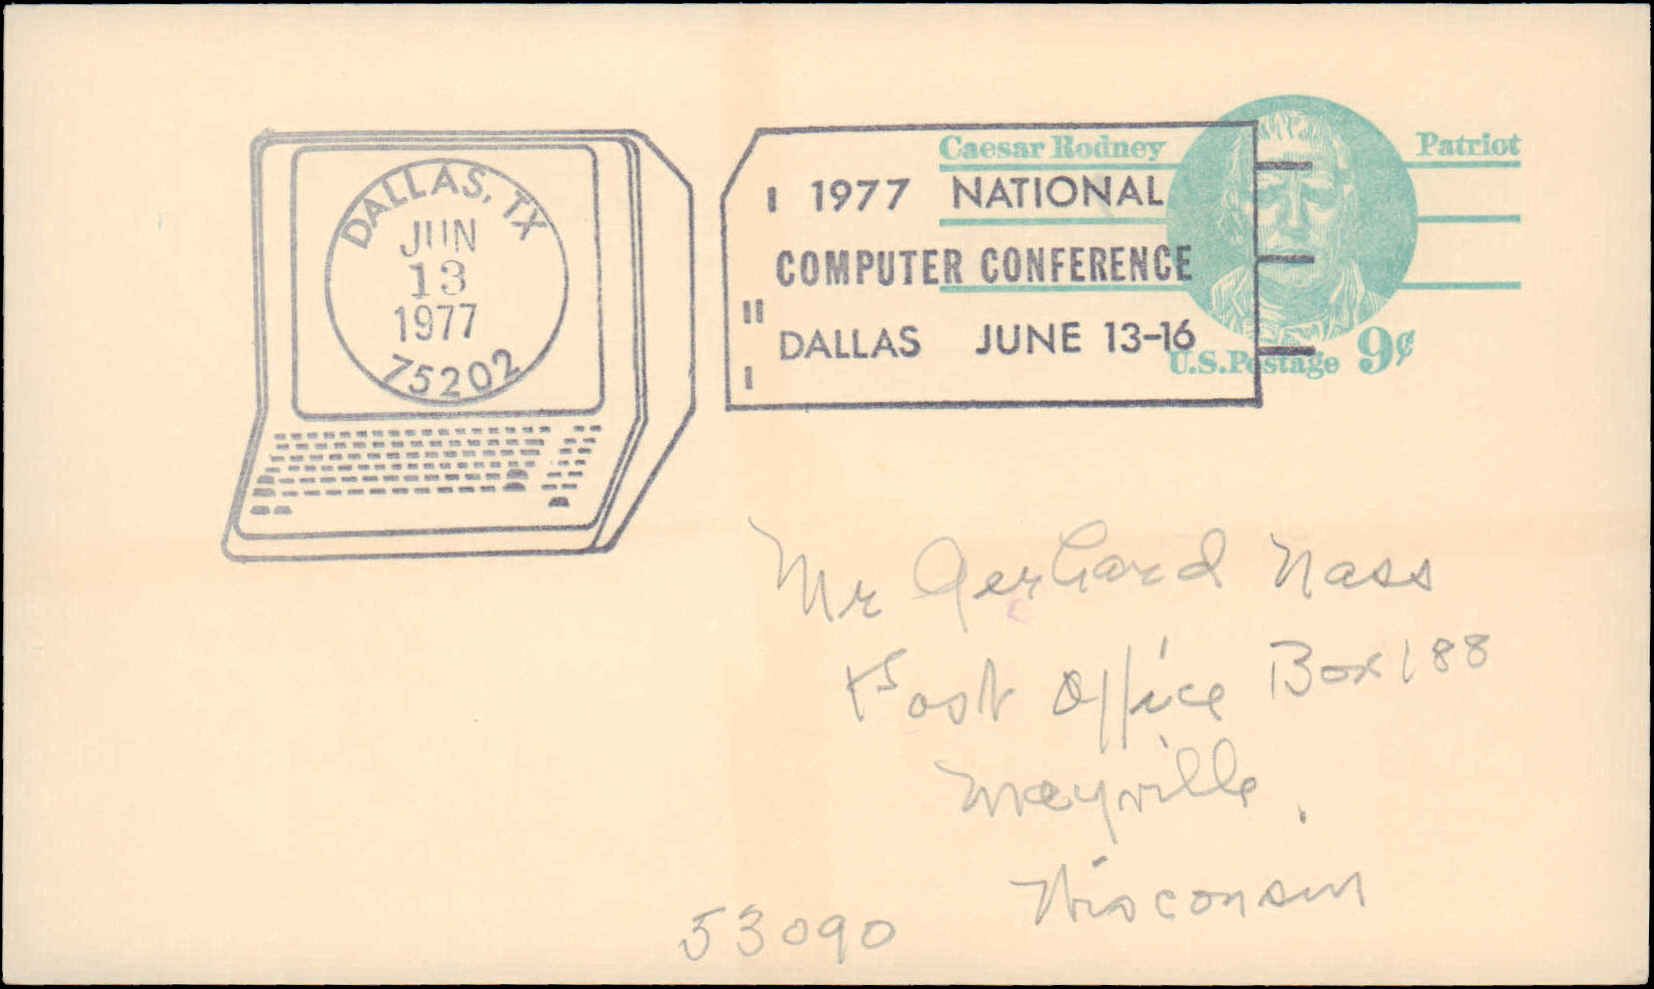 DALLAS, TX
JUN
13
1977
75202
1977 NATIONAL
COMPUTER CONFERENCE
DALLAS JUNE 13-16
Caesar Rodney Patriot
U.S. Postage 9¢
Mr Gerhard Nass
Post Office Box 188
Mayville,
Wisconsin
53090